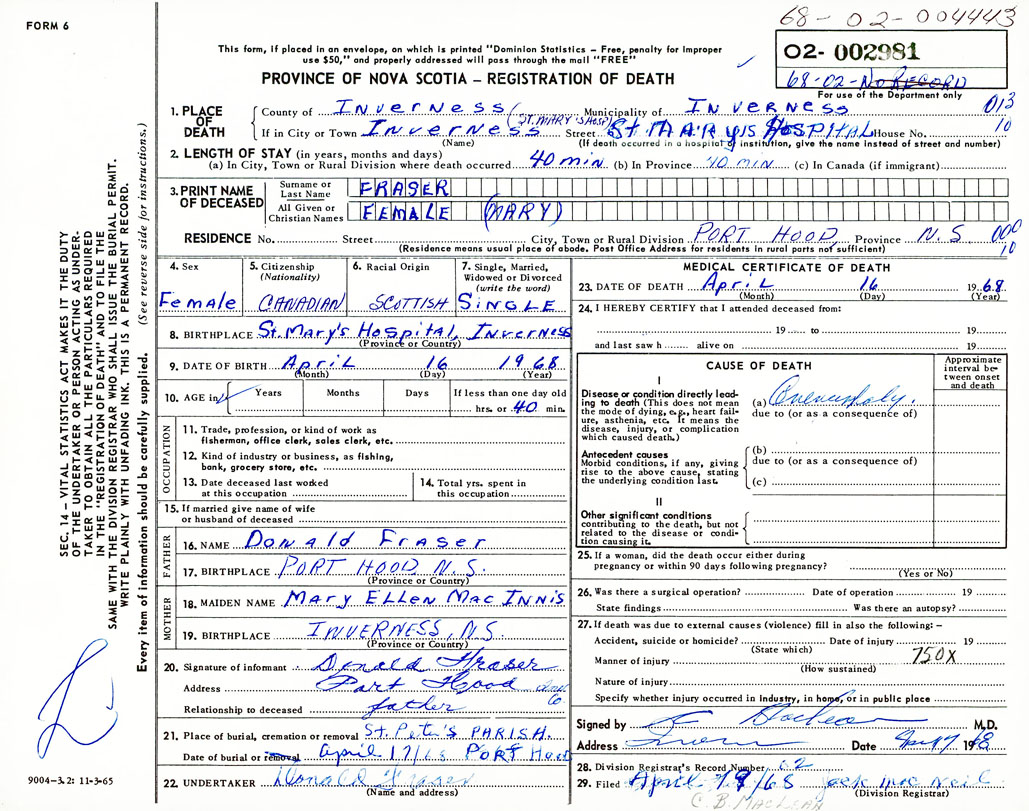 FORM 6
68-02-004443
This form, if placed in an envelope, on which is printed "Dominion Statistics – Free, penalty for improper
use $50," and properly addressed will pass through the mail "FREE"
02- 002981
68-02-No RECORD
For use of the Department only
PROVINCE OF NOVA SCOTIA – REGISTRATION OF DEATH
013
10
1. PLACE OF DEATH
County of INVERNESS (ST. MARY'S HOSP) Municipality of INVERNESS
If in City or Town INVERNESS Street ST. MARY'S HOSPITAL House No.
(Name) (If death occurred in a hospital or institution, give the name instead of street and number)
2. LENGTH OF STAY (in years, months and days)
(a) In City, Town or Rural Division where death occurred 40 min (b) In Province 40 MIN (c) In Canada (if immigrant)
3. PRINT NAME OF DECEASED
Surname or Last Name FRASER
All Given or Christian Names FEMALE (MARY)
RESIDENCE No. Street City, Town or Rural Division PORT HOOD, Province N.S 000
10
(Residence means usual place of abode. Post Office Address for residents in rural parts not sufficient)
4. Sex Female
5. Citizenship (Nationality) CANADIAN
6. Racial Origin SCOTTISH
7. Single, Married, Widowed or Divorced (write the word) SINGLE
8. BIRTHPLACE St. Mary's Hospital, Inverness
(Province or Country)
9. DATE OF BIRTH April 16 1968
(Month) (Day) (Year)
10. AGE in Years Months Days If less than one day old
hrs. or 40 min.
OCCUPATION
11. Trade, profession, or kind of work as
fisherman, office clerk, sales clerk, etc.
12. Kind of industry or business, as fishing,
bank, grocery store, etc.
13. Date deceased last worked
at this occupation
14. Total yrs. spent in
this occupation
15. If married give name of wife
or husband of deceased
FATHER
16. NAME Donald Fraser
17. BIRTHPLACE PORT HOOD N.S.
(Province or Country)
MOTHER
18. MAIDEN NAME Mary ELLEN MAC INNIS
19. BIRTHPLACE INVERNESS, N.S.
(Province or Country)
20. Signature of informant Donald Fraser
Address Port Hood
Relationship to deceased father
21. Place of burial, cremation or removal St. Peter's PARISH.
Date of burial or removal April 17/68 PORT Hood
22. UNDERTAKER Donald Fraser
(Name and address)
MEDICAL CERTIFICATE OF DEATH
23. DATE OF DEATH April 16 1968
(Month) (Day) (Year)
24. I HEREBY CERTIFY that I attended deceased from:
19 to 19
and last saw h alive on 19
CAUSE OF DEATH
Approximate interval between onset and death
I
Disease or condition directly leading to death (This does not mean the mode of dying, e.g., heart failure, asthenia, etc. It means the disease, injury, or complication which caused death.)
(a)
due to (or as a consequence of)
Antecedent causes
Morbid conditions, if any, giving rise to the above cause, stating the underlying condition last.
(b)
due to (or as a consequence of)
(c)
II
Other significant conditions
contributing to the death, but not related to the disease or condition causing it.
25. If a woman, did the death occur either during
pregnancy or within 90 days following pregnancy?
(Yes or No)
26. Was there a surgical operation? Date of operation 19
State findings Was there an autopsy?
27. If death was due to external causes (violence) fill in also the following: –
Accident, suicide or homicide? Date of injury 19
(State which)
Manner of injury 750X
(How sustained)
Nature of injury
Specify whether injury occurred in industry, in home, or in public place
Signed by M.D.
Address Date 1968
28. Division Registrar's Record Number 62
29. Filed April 19/68 Jack Mac Neil
(Division Registrar)
C. B. MacLean
SEC. 14 – VITAL STATISTICS ACT MAKES IT THE DUTY
OF THE UNDERTAKER OR PERSON ACTING AS UNDER-
TAKER TO OBTAIN ALL THE PARTICULARS REQUIRED
IN THE "REGISTRATION OF DEATH" AND TO FILE THE
SAME WITH THE DIVISION REGISTRAR WHO SHALL ISSUE THE BURIAL PERMIT.
WRITE PLAINLY WITH UNFADING INK. THIS IS A PERMANENT RECORD.
Every item of information should be carefully supplied. (See reverse side for instructions.)
9004-3.2: 11-3-65